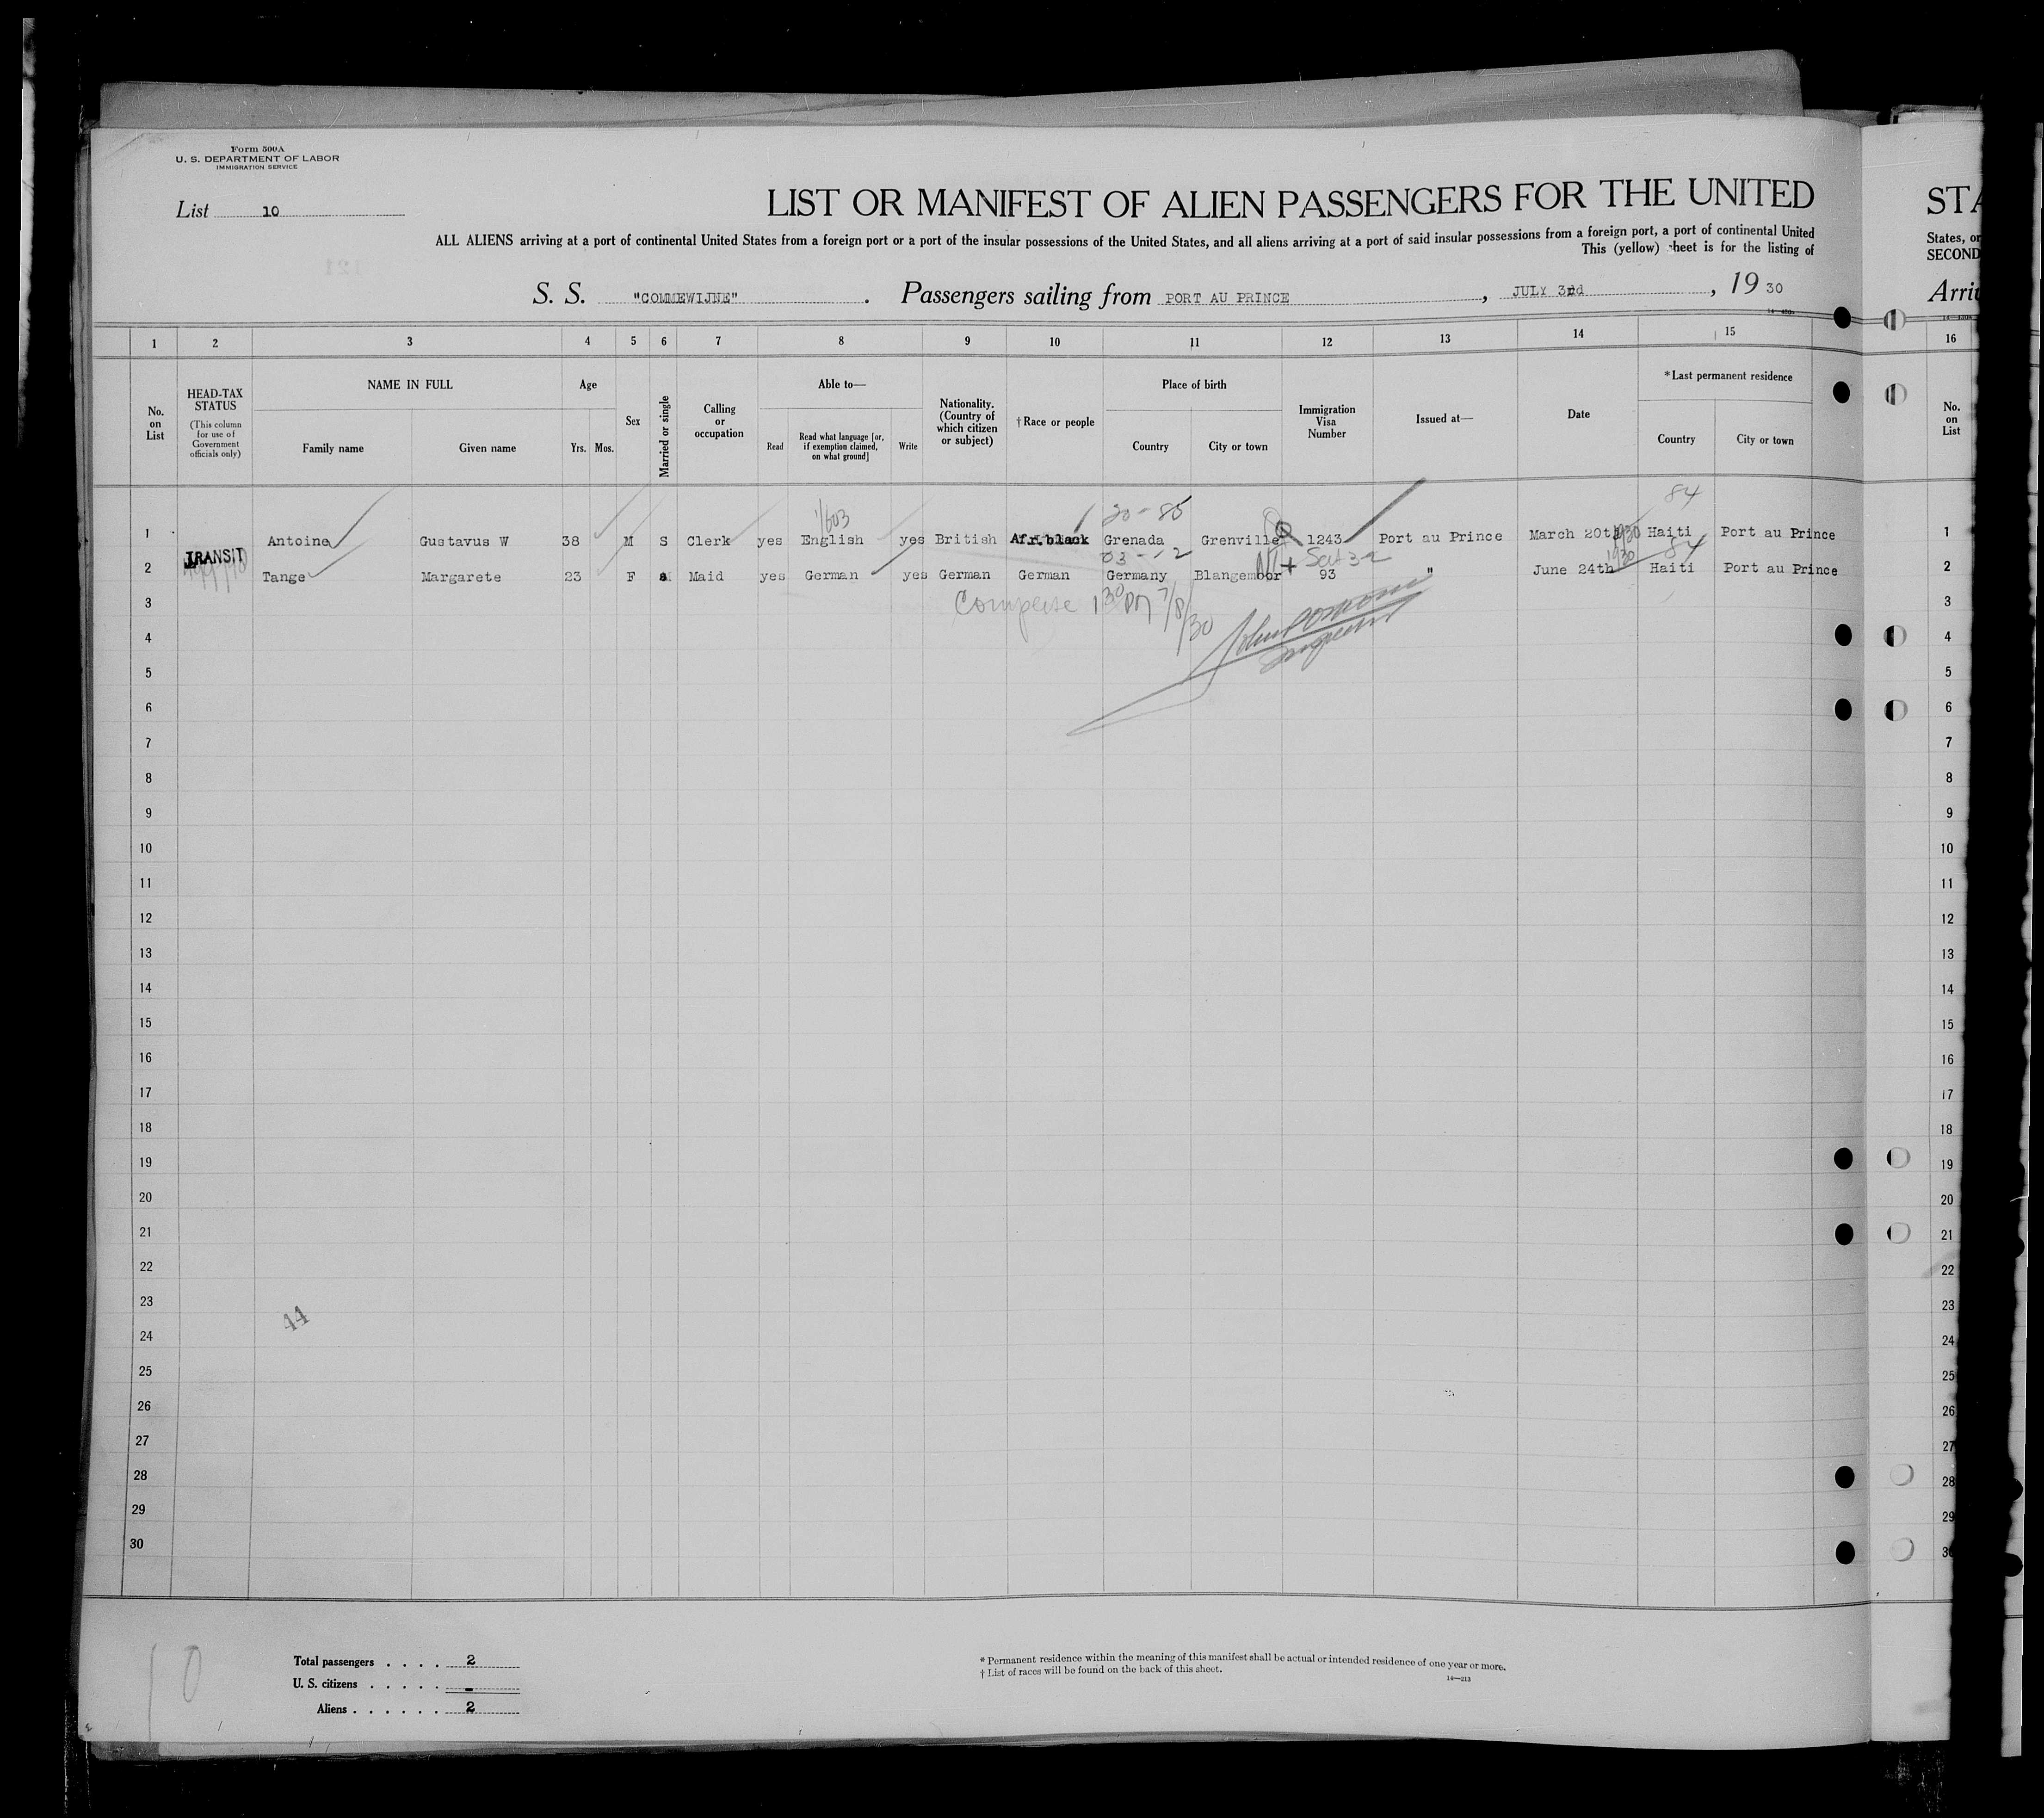 Form 500A
U. S. DEPARTMENT OF LABOR
IMMIGRATION SERVICE
List 10
LIST OR MANIFEST OF ALIEN PASSENGERS FOR THE UNITED
ALL ALIENS arriving at a port of continental United States from a foreign port or a port of the insular possessions of the United States, and all aliens arriving at a port of said insular possessions from a foreign port, a port of continental United
This (yellow) sheet is for the listing of
S. S. "COMMEWIJNE" . Passengers sailing from PORT AU PRINCE , JULY 3rd , 1930
STA
States, or
SECOND
1 2 3 4 5 6 7 8 9 10 11 12 13 14 15 16
No. on List
HEAD-TAX STATUS
(This column for use of Government officials only)
NAME IN FULL
Family name Given name
Age
Yrs. Mos.
Sex
Married or single
Calling or occupation
Able to—
Read Read what language [or, if exemption claimed, on what ground] Write
Nationality. (Country of which citizen or subject)
†Race or people
Place of birth
Country City or town
Immigration Visa Number
Issued at—
Date
*Last permanent residence
Country City or town
No. on List
84
1/603
20-85
1 Antoine Gustavus W 38 M S Clerk yes English yes British Afr.black Grenada Grenville 1243 Port au Prince March 20th 1930 Haiti Port au Prince 1
TRANSIT
03-12
84
2 Tange Margarete 23 F s Maid yes German yes German German Germany Blangemoor 93 " June 24th 1930 Haiti Port au Prince 2
3 1 30 PM 7/8/30 3
4 4
5 5
6 6
7 7
8 8
9 9
10 10
11 11
12 12
13 13
14 14
15 15
16 16
17 17
18 18
19 19
20 20
21 21
22 22
23 23
44
24 24
25 25
26 26
27 27
28 28
29 29
30
10
Total passengers . . . . 2
U. S. citizens . . . . . -
Aliens . . . . . . 2
* Permanent residence within the meaning of this manifest shall be actual or intended residence of one year or more.
† List of races will be found on the back of this sheet.
14—213